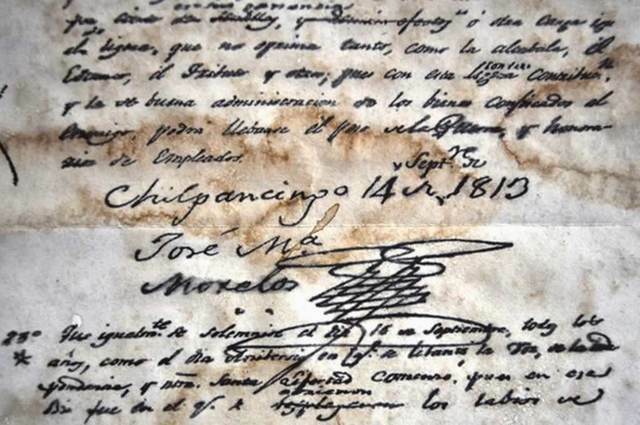 ó otra carga ig
ligera, que no oprima tanto, como la alcabala, el
Estanco, el Tributo y otros; pues con esta ligera contribuⁿ,
y la buena administracion de los bienes confiscados al
Enemigo, podra llebarse el peso de la Guerra, y honora-
rios de Empleados.
Chilpancingo 14 de Septᵉ de 1813
José Mᵃ
Morelos
23º Que igualmᵗᵉ se solemnise el dia 16 de Septiembre, todos los
años, como el dia Anibersario en q.ᵉ se lebanto la Voz de la
pendencia, y ntra. Santa Libertad Comensó, pues en ese
Dia fue en el q.ᵉ se desplegaron los labios de